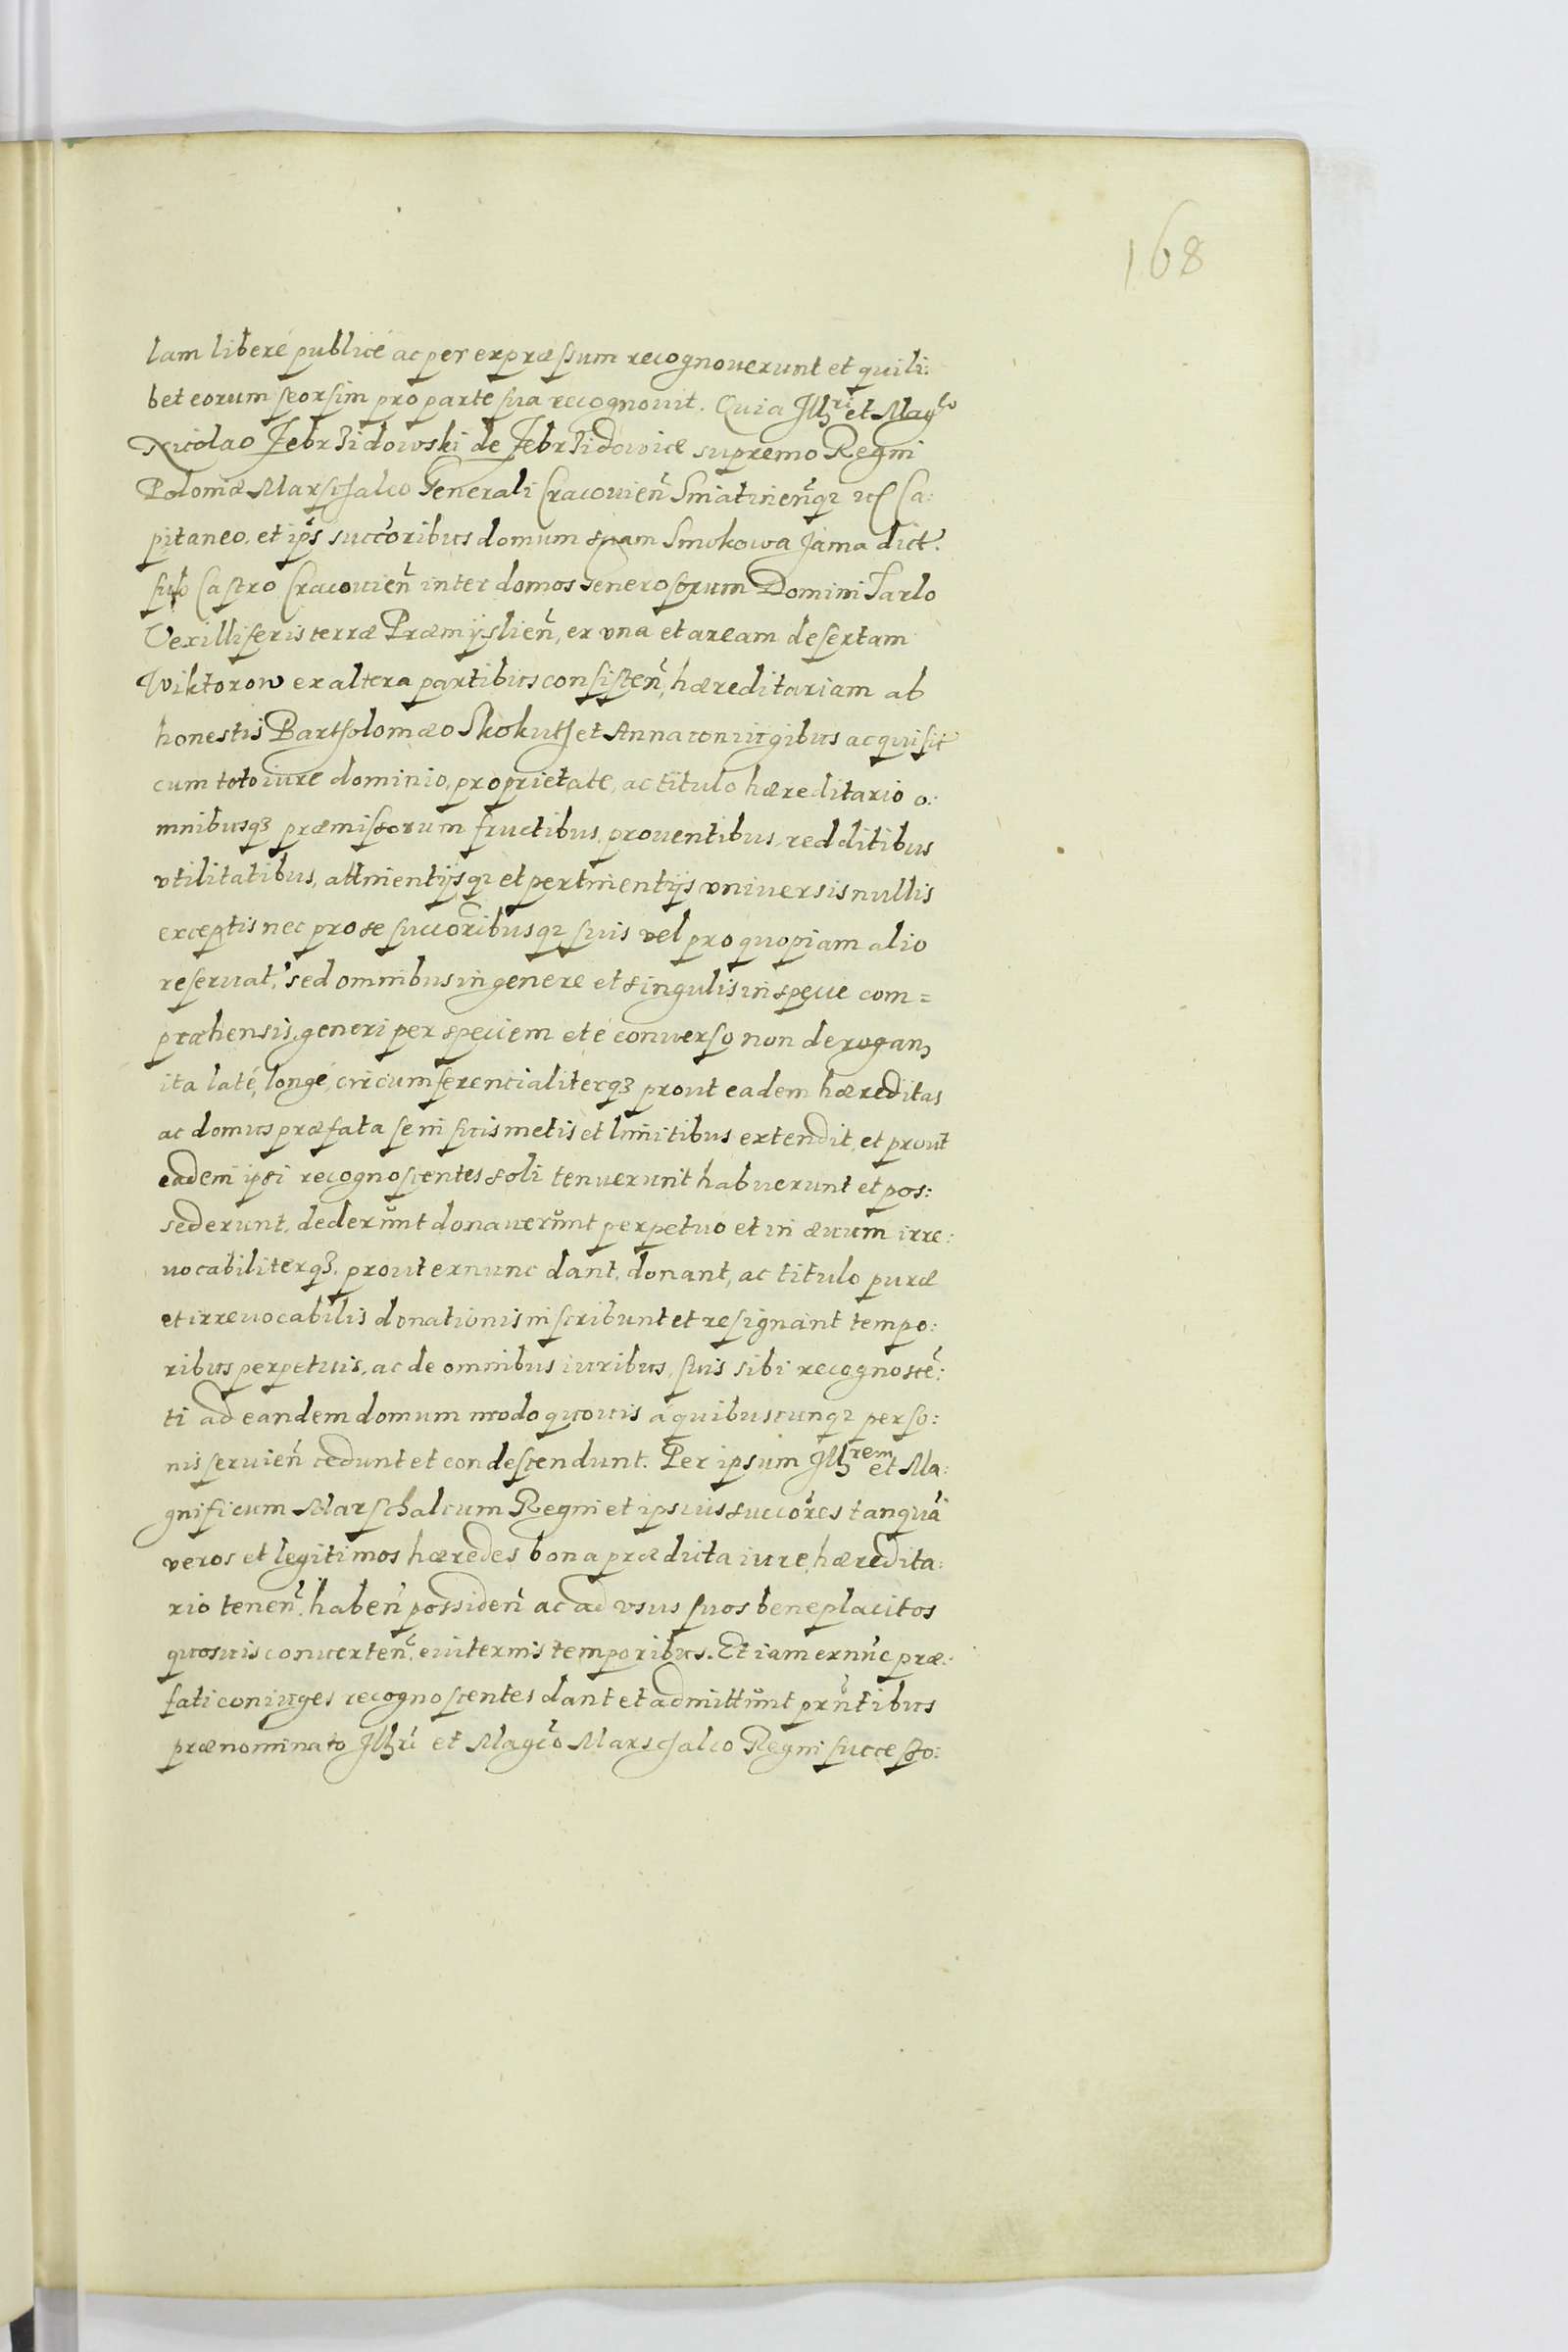 168
lam liberé publicé ac per expræssum recognouerunt et quili:
bet eorum seorsim pro parte sua recognouit. Quia Illri et Magco
Nicolao Zebrzidowski de Zebrzidowice supremo Regni
Poloniæ Marschalco Generali Cracouien̄ Sniatinen̄q₃ etc Ca:
pitaneo, et ip̄s succ̄oribus domum suam Smokowa Jama dict.
sub Castro Cracouien̄ inter domos Generosorum Domini Tarlo
Vexilliferis terræ Præmysľien̄, ex vna et aream desertam
Wiktorow ex altera partibus consisten̄, hæreditariam ab
honestis Bartholomæo Skokuth et Anna coniugibus acquisit
cum toto iure dominio, proprietate, ac titulo hæreditario o:
mnibusq₃ præmissorum fructibus, prouentibus, redditibus
vtilitatibus, attinentijsq₃ et pertinentijs vniuersis nullis
exceptis nec pro se succ̄oribusq₃ suis vel pro quopiam alio
reseruat., sed omnibus in genere et singulis in specie com=
præhensis, generi per speciem et é conuerso non derogan,
ita laté, longé, circumferencialiterq₃ prout eadem hæreditas
ac domus præfata se in suis metis et limitibus extendit, et prout
eadem ipsi recognoscentes soli tenuerunt habuerunt et pos:
sederunt, dederunt donauerunt perpetuo et in æuum irre:
uocabiliterq₃, prout ex nunc dant, donant, ac titulo puræ
et irreuocabilis donationis inscribunt et resignant tempo:
ribus perpetuis, ac de omnibus iuribus, suis sibi recognoscē:
ti ad eandem domum modo quouis á quibuscunq₃ perso:
nis seruien̄ cedunt et condescendunt. Per ipsum Illrem et Ma:
gnificum Marschalcum Regni et ipsius succ̄ores tanquā
veros et legitimos hæredes bona prædicta iure hæredita:
rio tenen̄, haben̄ possiden̄ ac ad vsus suos beneplacitos
quosuis conuerten̄, euiternis temporibus. Et iam ex nūc præ:
fati coniuges recognoscentes dant et admittunt pr̄ntibus
prænominato Illri et Magc̄o Marschalco Regni successo: